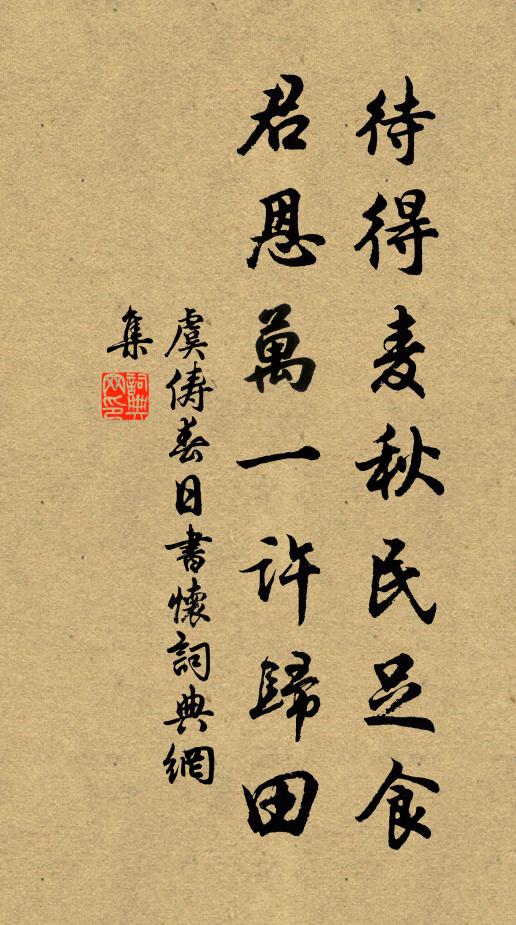 待得麦秋民足食
君恩萬一许歸田
虞俦春日書懷詞典網
集
詞典
网印